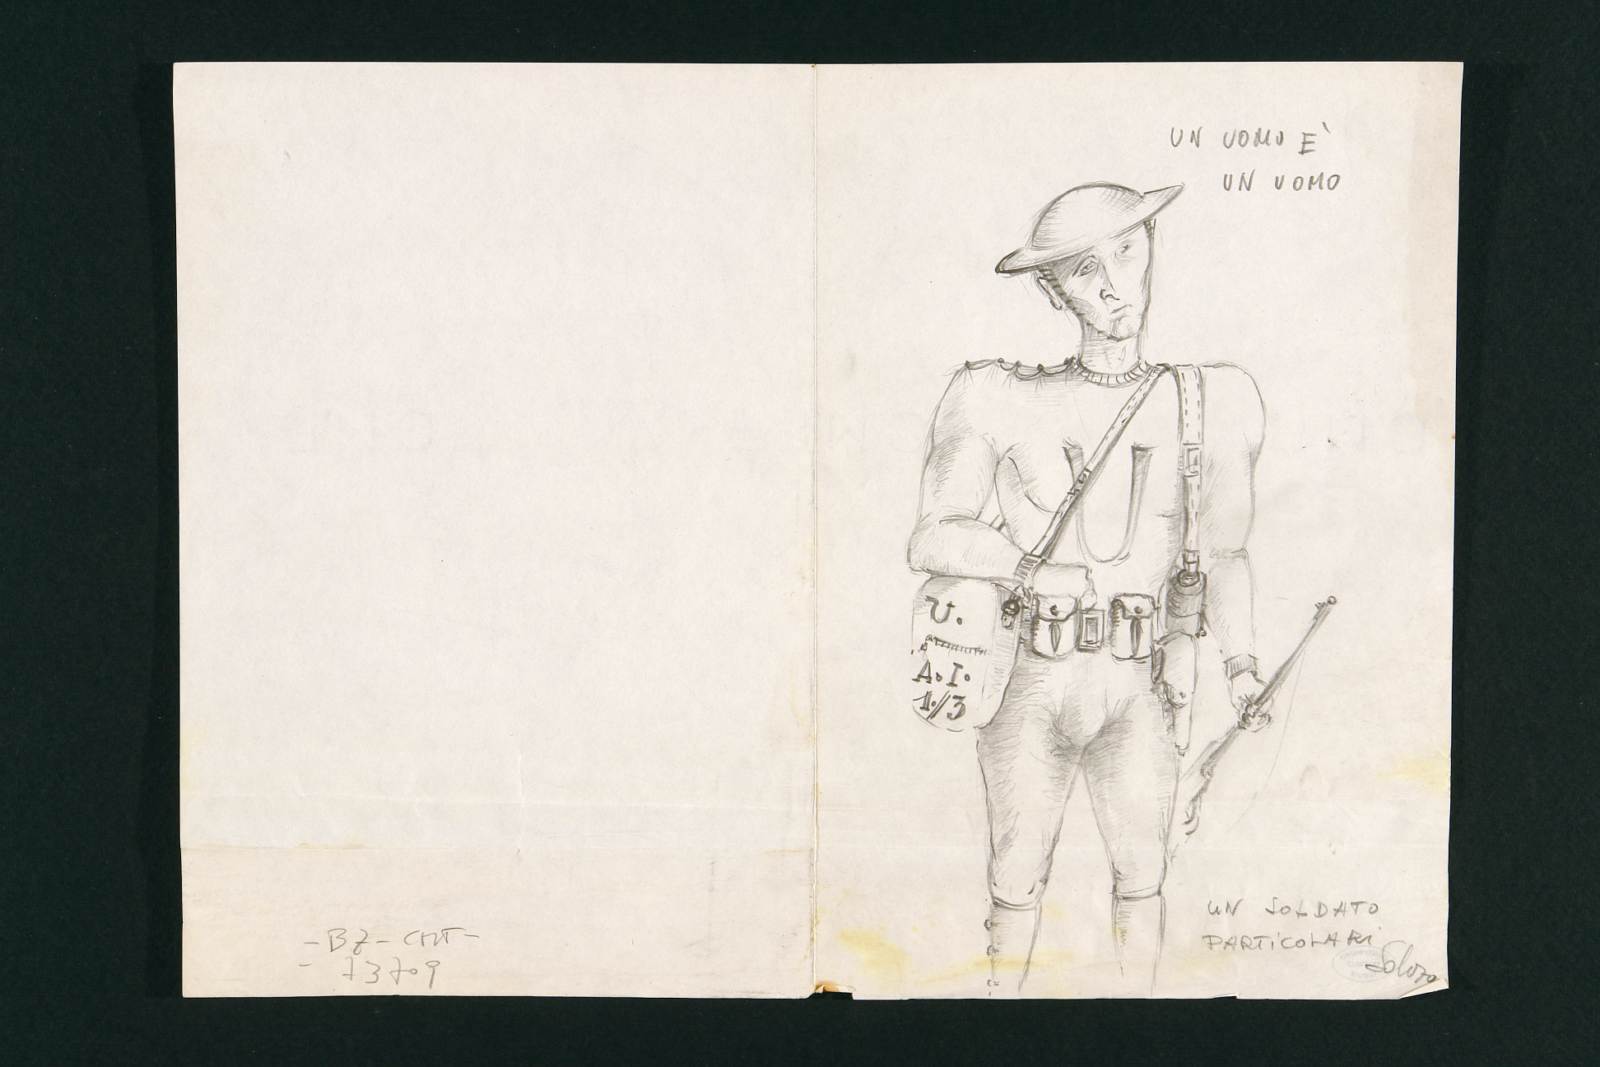 UN UOMO È
UN UOMO
U
U.
A.I.
1./3
UN SOLDATO
PARTICOLARI
- BZ - CMT -
- 73709